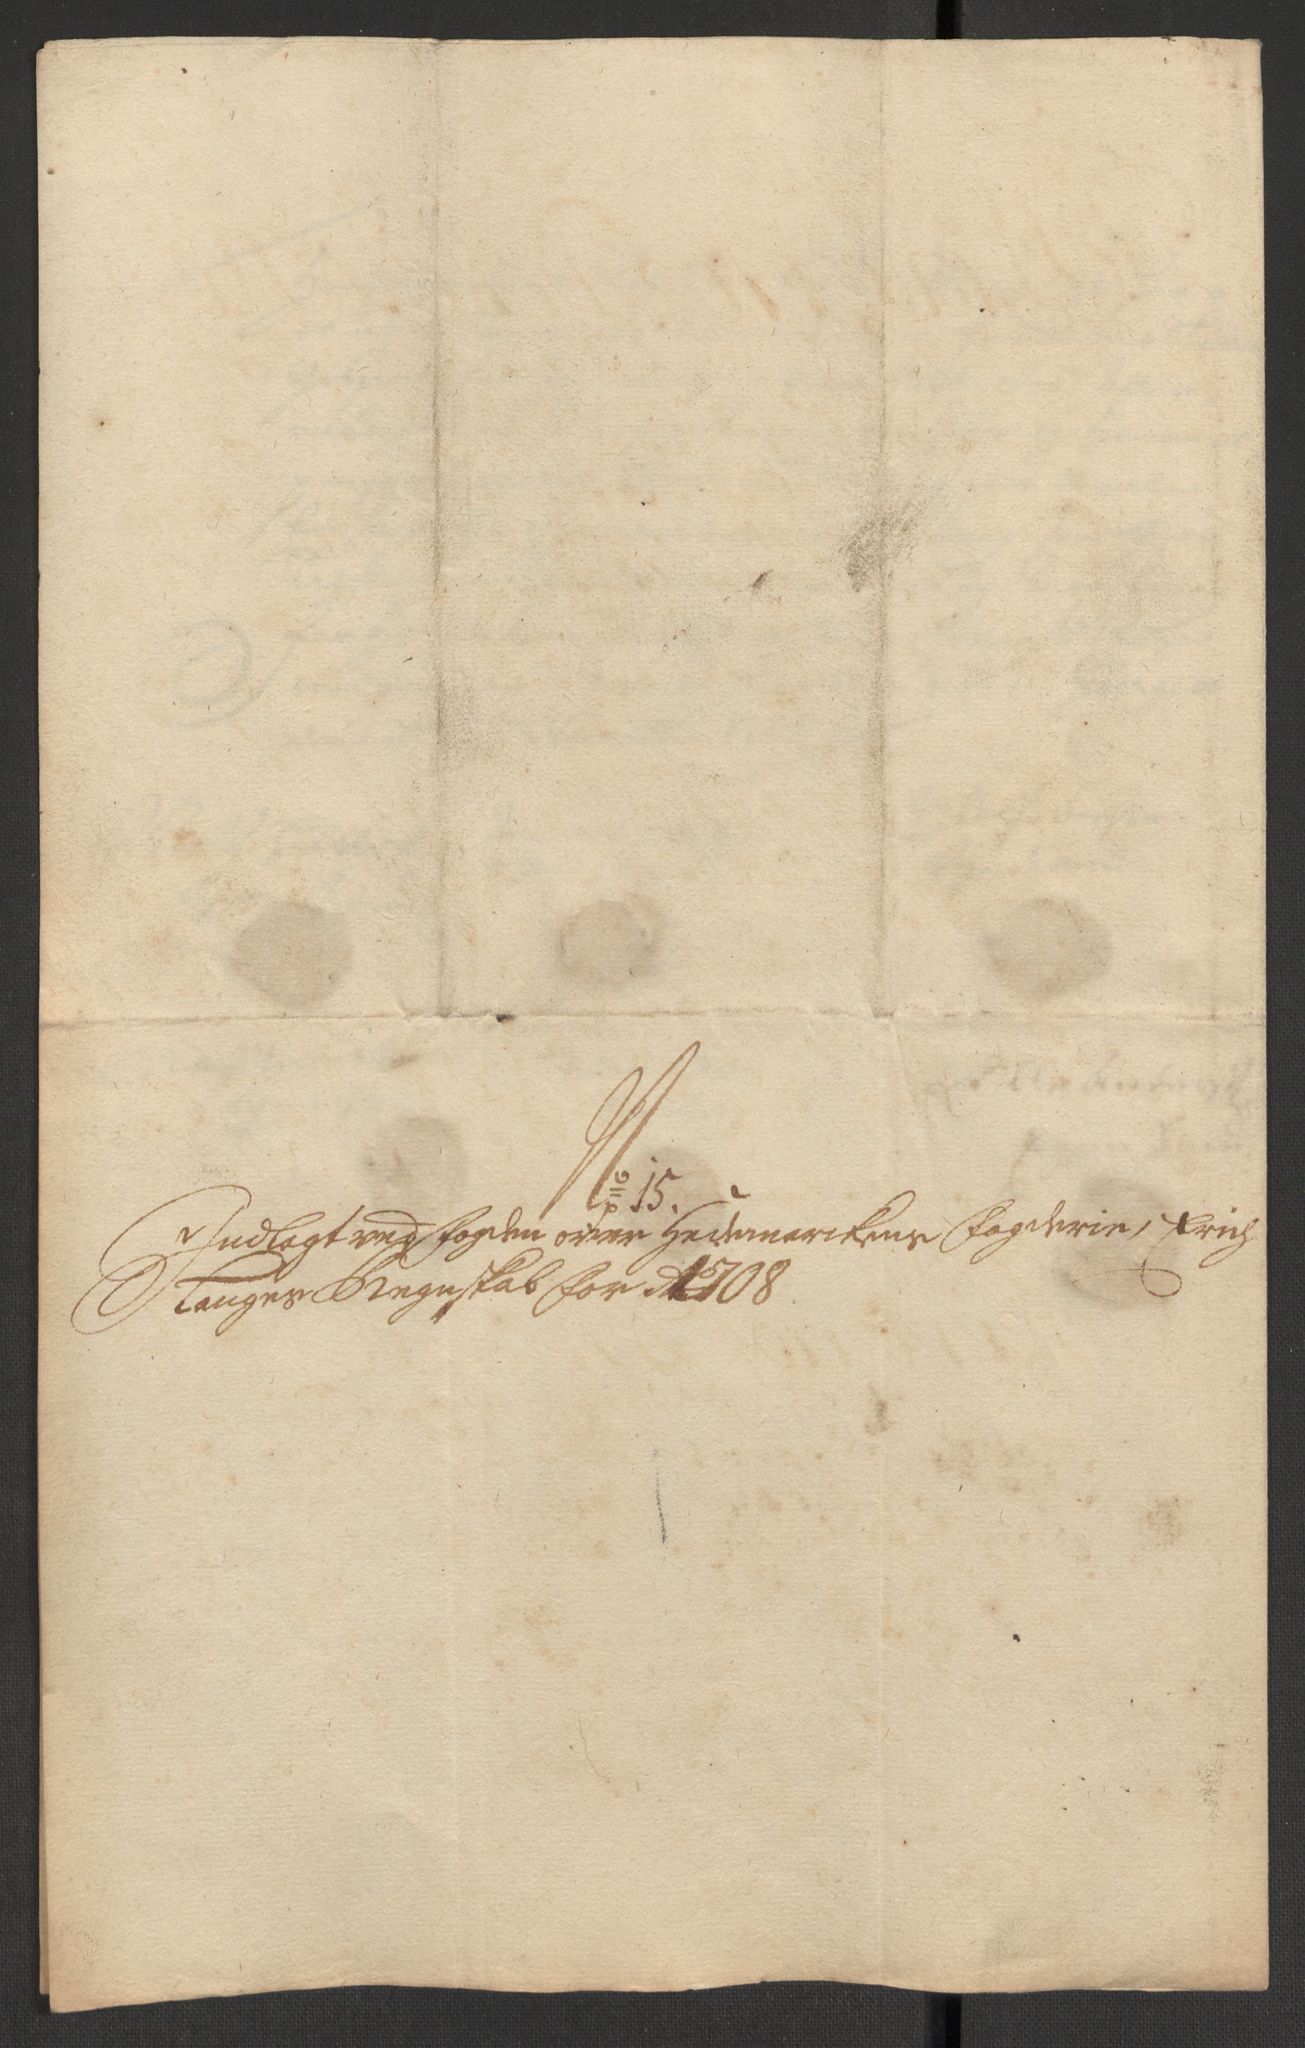 No 15.
Indlagt ved fogden over Hedemarckens fogderie, Erich
Tanges Regnskab for Ao 1708